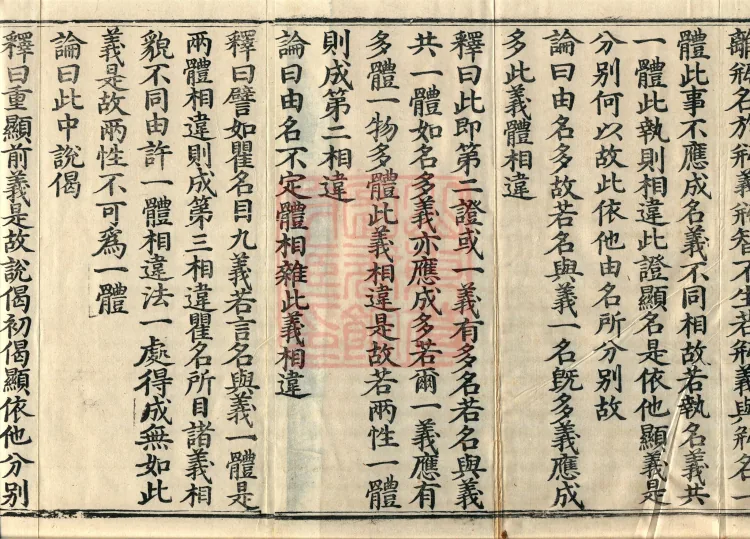 離瓶名於瓶義瓶智不生若瓶義與瓶名一
體此事不應成名義不同相故若執名義共
一體此執則相違此證顯名是依他顯義是
分別何以故此依他由名所分別故
論曰由名多故若名與義一名旣多義應成
多此義體相違
釋曰此即第二證或一義有多名若名與義
共一體如名多義亦應成多若爾一義應有
多體一物多體此義相違是故若兩性一體
則成第二相違
論曰由名不定體相雜此義相違
釋曰譬如瞿名目九義若言名與義一體是
兩體相違則成第三相違瞿名所目諸義相
貌不同由許一體相違法一處得成無如此
義是故兩性不可爲一體
論曰此中說偈
釋曰重顯前義是故說偈初偈顯依他分別